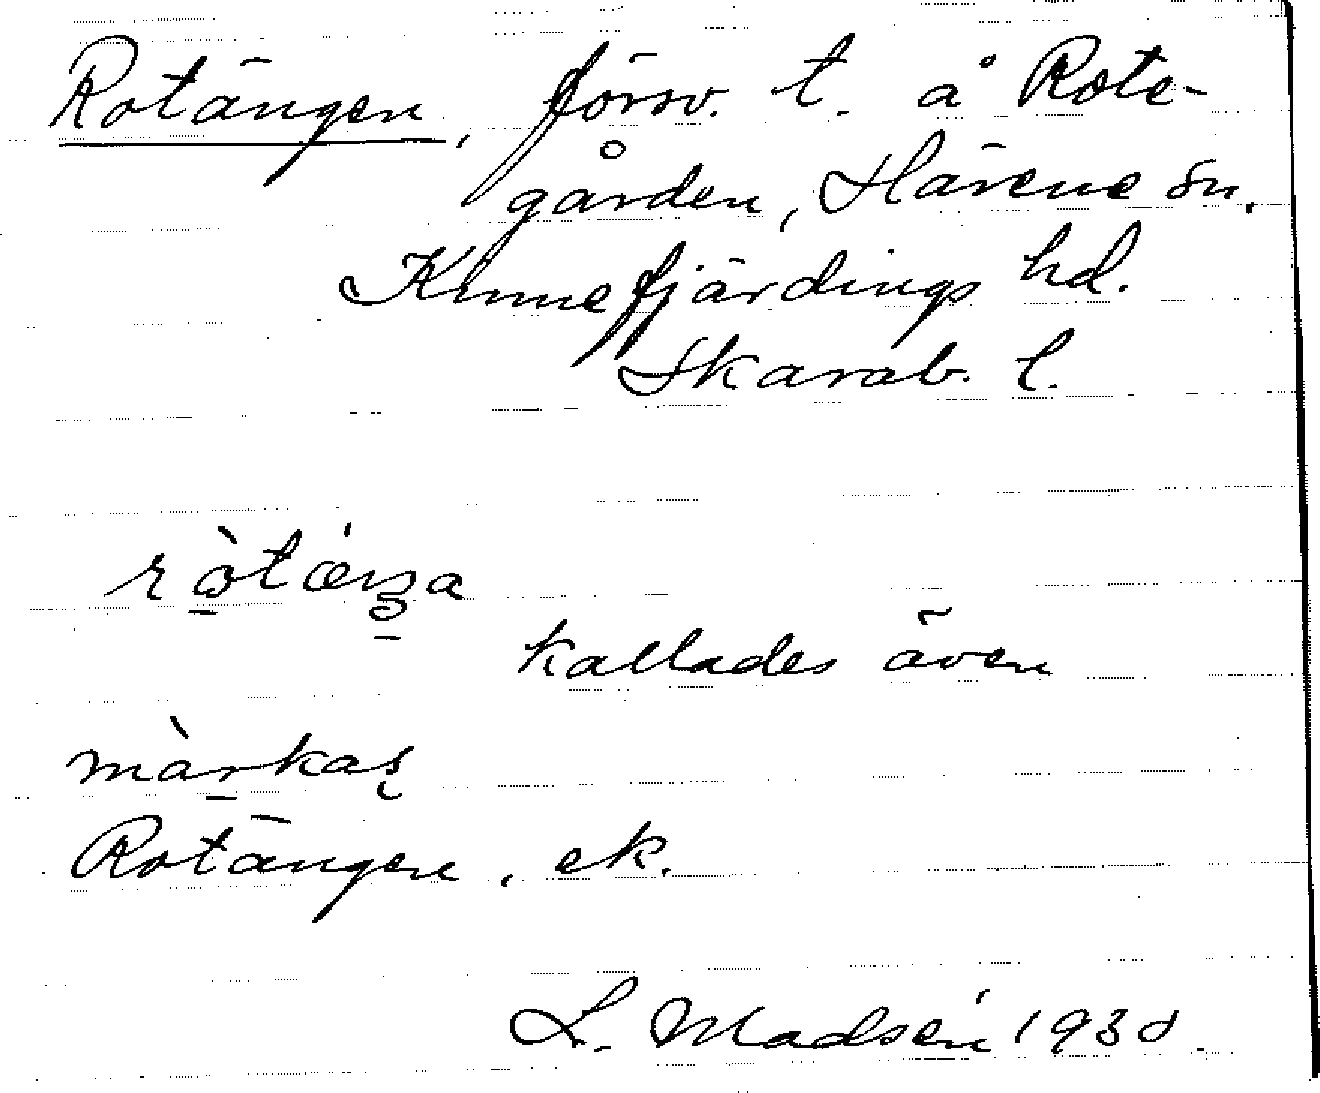 Rotängen, försv. t. å Rote-
gården, Härene sn.
Kinnefjärdings hd.
Skarab. l.
kallades även
Rotängen, ek.
L. Madsén 1930